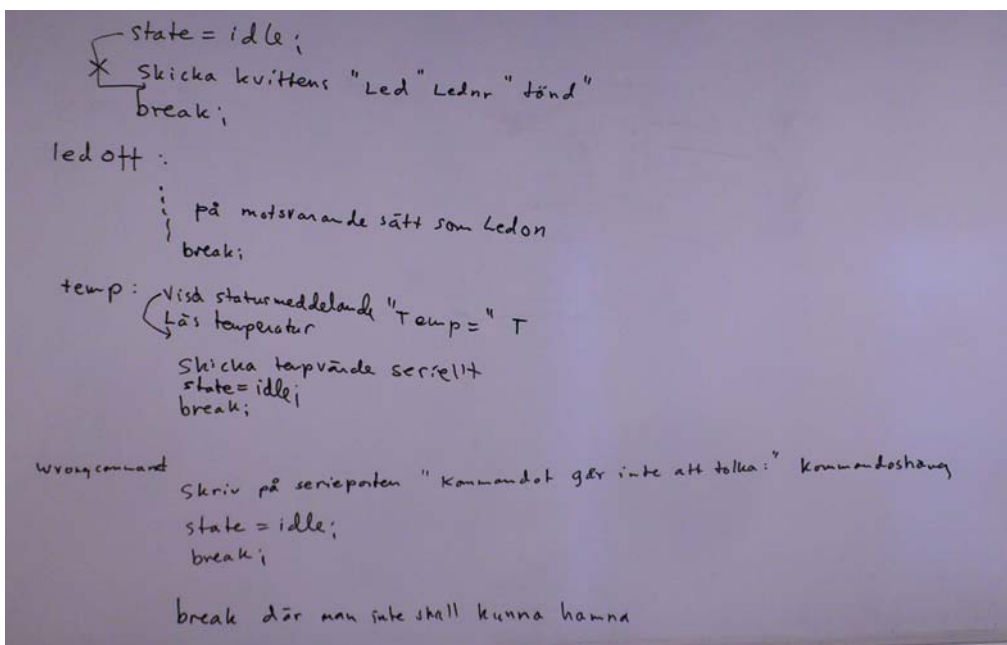 state = idle;
Skicka kvittens "Led" Lednr "tänd"
break;
led off :
på motsvarande sätt som Ledon
break;
temp: Visa statusmeddelande "Temp=" T
Läs temperatur
Skicka tempvärde seriellt
state = idle;
break;
wrongcommand
Skriv på serieporten "Kommandot går inte att tolka:" kommandosträng
state = idle;
break;
break där man inte skall kunna hamna